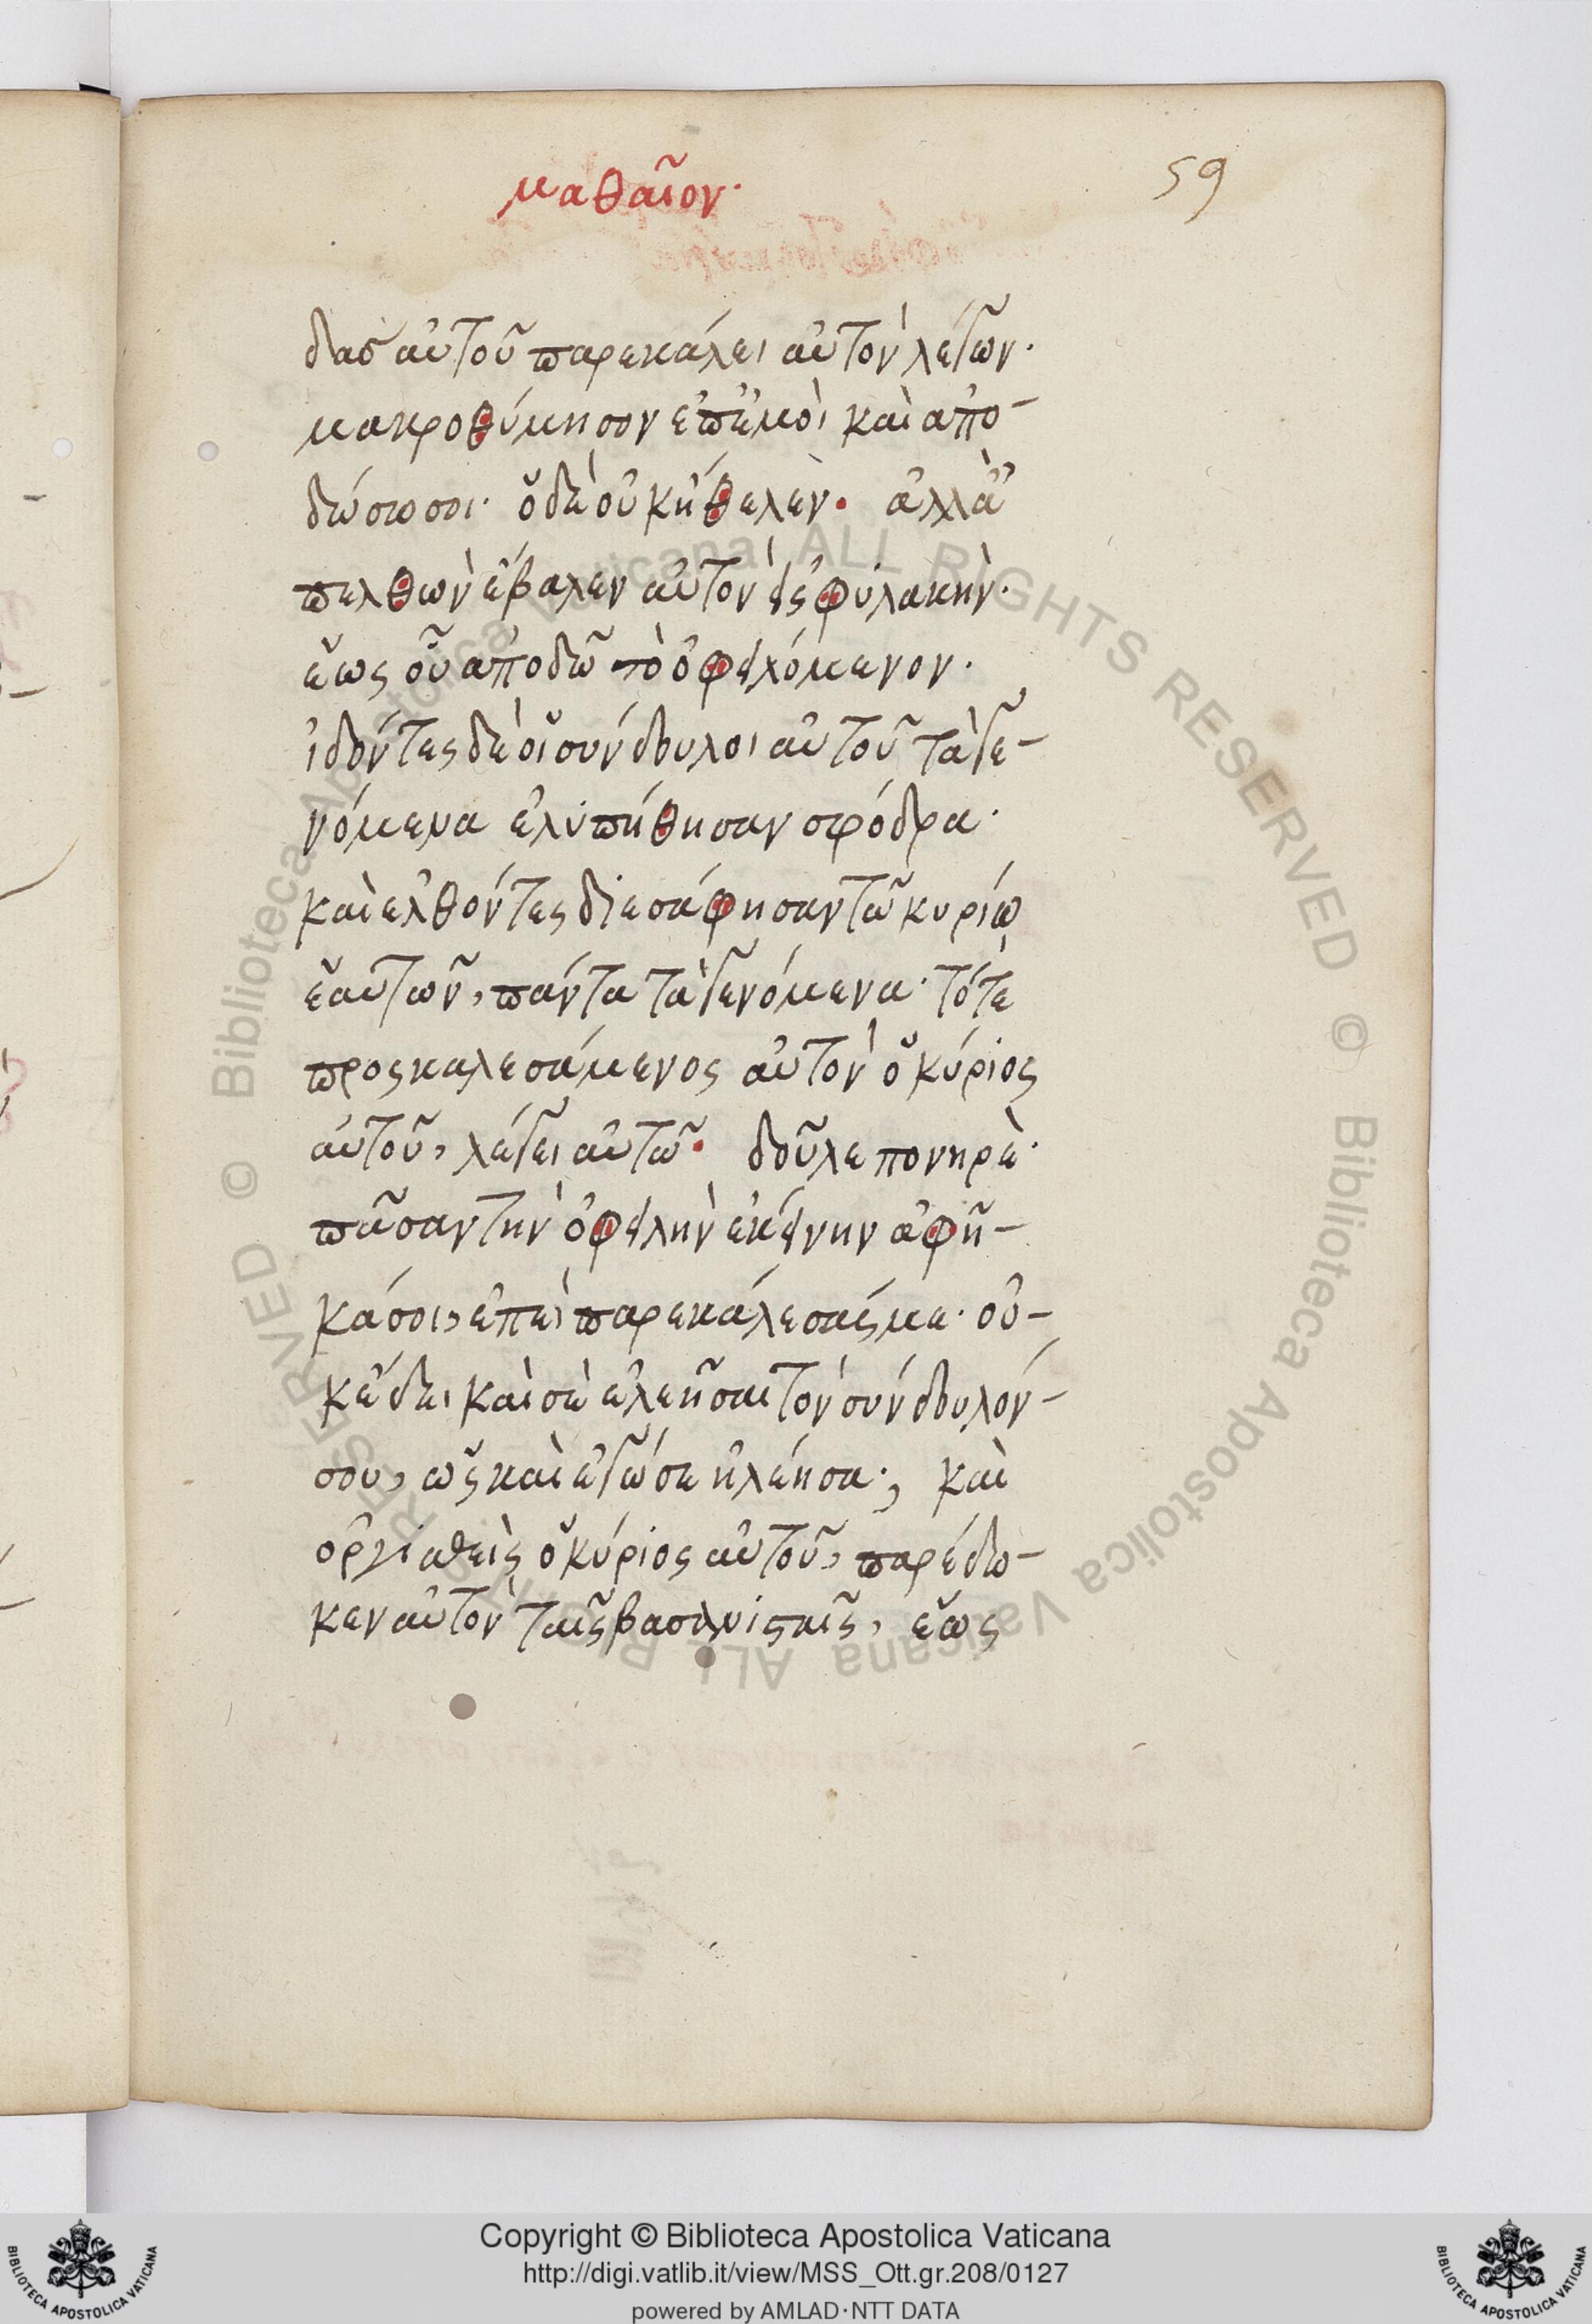 μαθαῖον·
59
δας αὐτοῦ παρεκάλει αὐτὸν λέγων·
μακροθύμησον ἐπ' ἐμοὶ καὶ ἀπο-
δώσω σοι· ὁ δὲ οὐκ ἤθελεν· ἀλλὰ ἀ
πελθὼν ἔβαλεν αὐτὸν εἰς φυλακὴν·
ἕως οὗ ἀποδῶ τὸ ὀφειλόμενον·
ἰδόντες δὲ οἱ σύνδουλοι αὐτοῦ τὰ γε-
νόμενα ἐλυπήθησαν σφόδρα·
καὶ ἐλθόντες διεσάφησαν τῶ κυρίω
ἑαυτῶν, πάντα τὰ γενόμενα· τότε
προςκαλεσάμενος αὐτὸν ὁ κύριος
αὐτοῦ, λέγει αὐτῶ· δοῦλε πονηρὲ·
πᾶσαν τὴν ὀφειλὴν ἐκείνην ἀφῆ-
κά σοι, ἐπεὶ παρεκάλεσάς με· οὐ-
κ ἔδει καὶ σὲ ἐλεῆσαι τὸν σύνδουλόν-
σου, ὡς καὶ ἐγώ σε ἠλέησα·, καὶ
ὀργιαθεὶς ὁ κύριος αὐτοῦ, παρέδω-
κεν αὐτὸν ταῖς βασανισταῖς, ἕως
© Biblioteca Apostolica Vaticana ALL RIGHTS RESERVED © Biblioteca Apostolica Vaticana ALL RIGHTS RESERVED
Copyright © Biblioteca Apostolica Vaticana
http://digi.vatlib.it/view/MSS_Ott.gr.208/0127
powered by AMLAD·NTT DATA
BIBLIOTECA APOSTOLICA VATICANA
BIBLIOTECA APOSTOLICA VATICANA